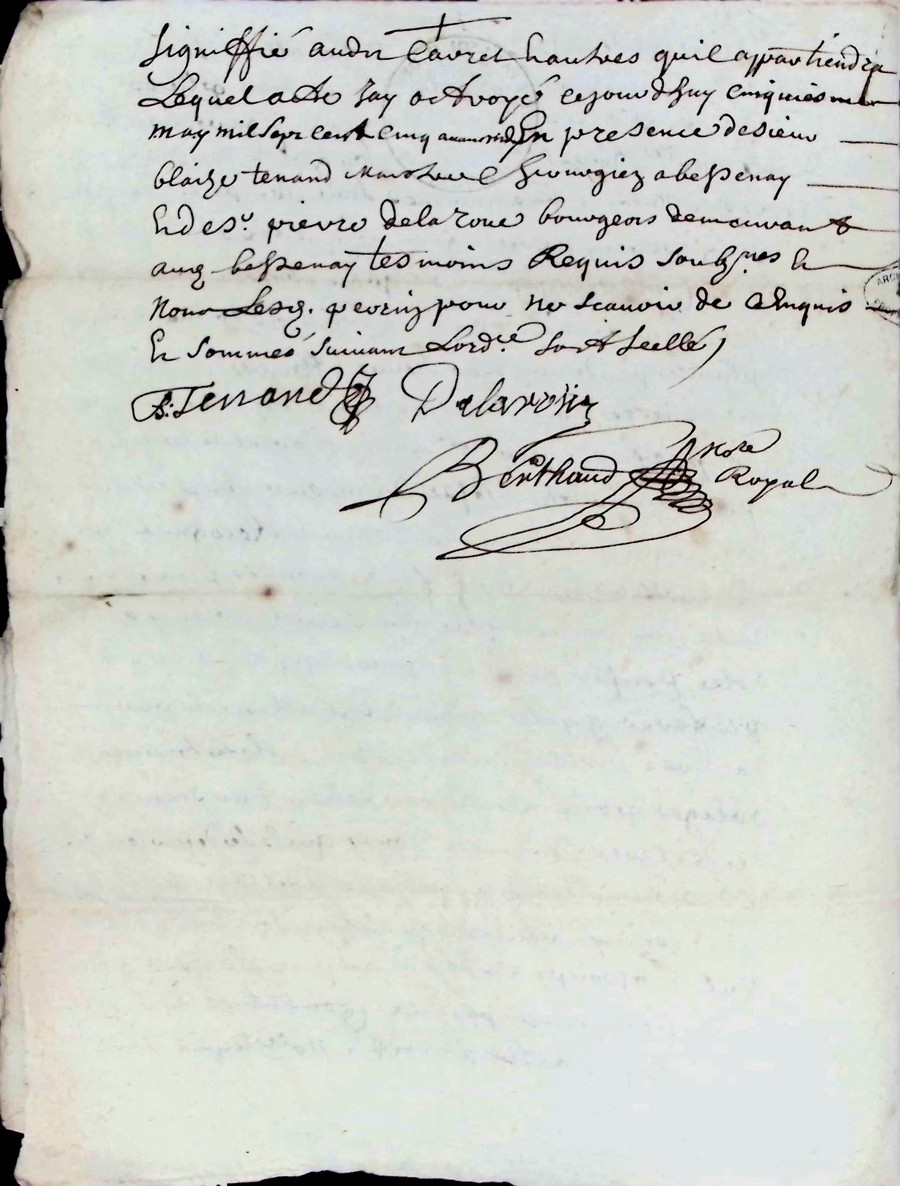 signiffié audit Favret & autres quil appartiendra
Lequel acte Jay octroyé cejourdhuy cinquiesme
may mil sept cent cinq apres midy En presence de sieur
blaize tenand Marchand a bessenay
Et de sr. pierre delaroue bourgeois demeurant
aud bessenay tesmoins Requis soubsnes Et
Non Lesd. pour ne scavoir de Enquis
Et sommés suivant Lordce soit scellé
B: Tenand Delaroüe
Berthaud nore
Royal